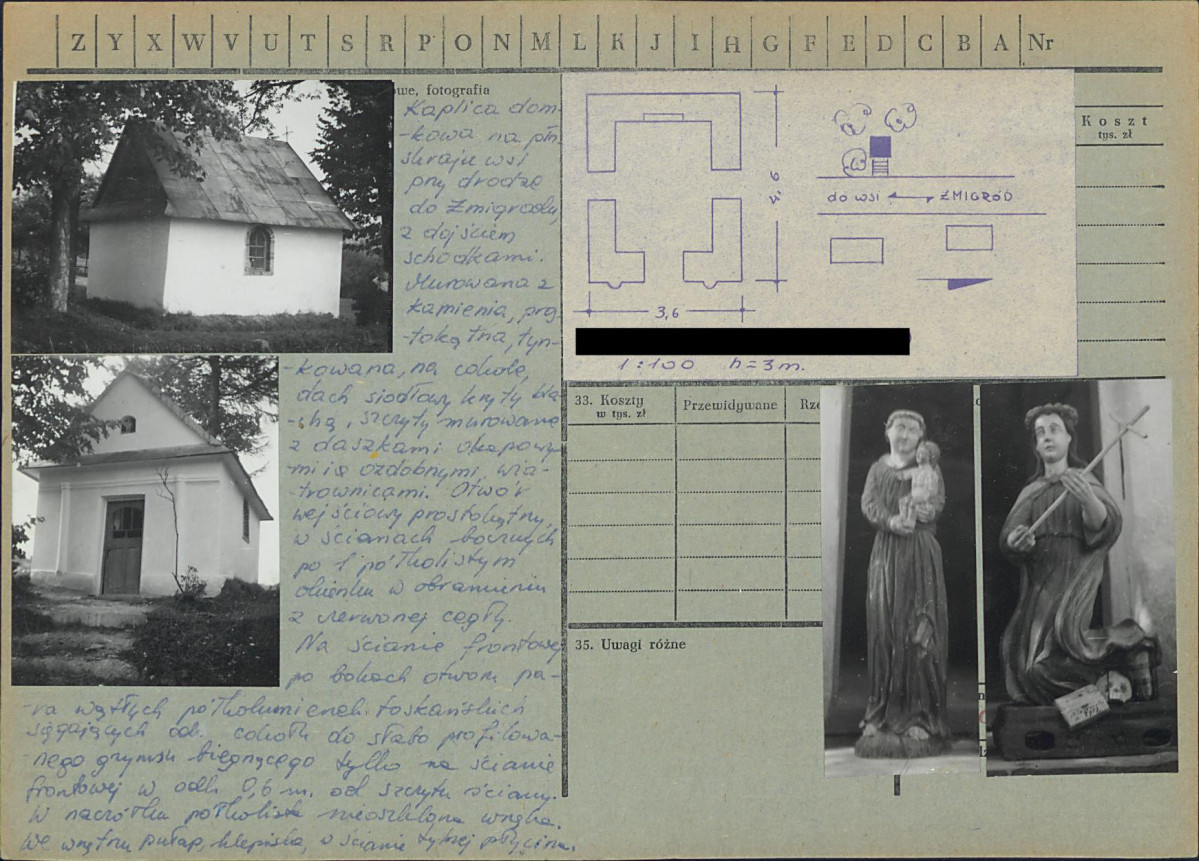 Z Y X W V U T S R P O N M L K J I H G F E D C B A Nr
owe, fotografia
Kaplica dom-
-kowa na płn
skraju wsi
przy drodze
do Żmigrodu,
z dojściem
schodkami.
Murowana z
kamienia, pros-
-tokątna, tyn-
-kowana, na cokole,
dach siodłowy kryty bla-
-chą, szczyty murowane
z daszkami okapowy-
-mi i ozdobnymi, wia-
-trownicami. Otwór
wejściowy prostokątny,
w ścianach bocznych
po 1 półkolistym
okienku w obramieniu
z czerwonej cegły.
Na ścianie frontowej
po bokach otworu pa-
-ra wąskich półkolumienek toskańskich
sięgających od cokołu do słabo profilowa-
-nego gzymsu biegnącego tylko na ścianie
frontowej w odl. 0,6 m. od szczytu ściany.
W naczółku półkolista nieoszklona wnęka.
We wnętrzu pułap, klepiska, w ścianie tylnej płycina.
3,6
1:100 h=3m.
do wsi ŻMIGRÓD
Koszt
tys. zł
33. Koszty
w tys. zł
Przewidywane
Rze
35. Uwagi różne